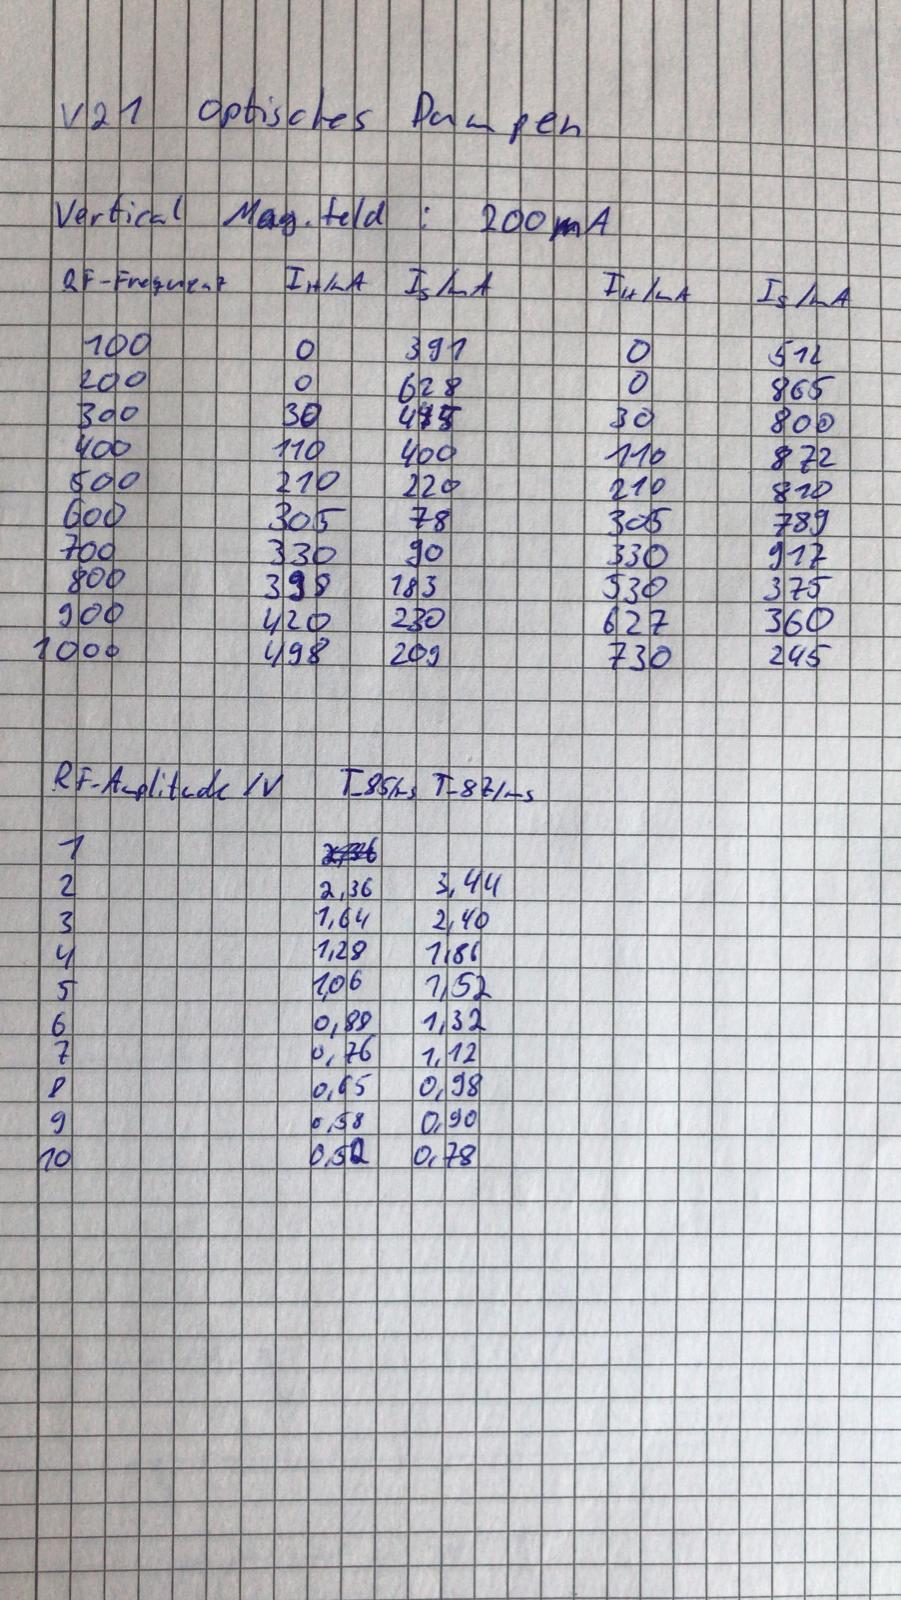 V21 Optisches Pumpen
Vertical Mag.feld : 200mA
RF-Frequenz I_H/mA I_S/mA I_H/mA I_S/mA
100 0 391 0 512
200 0 628 0 865
300 30 30 800
400 110 400 110 872
500 210 220 210 810
600 305 78 305 789
700 330 90 330 917
800 398 183 530 375
900 420 230 627 360
1000 498 209 730 245
RF-Amplitude /V T_85/ms T_87/ms
1
2 2,36 3,44
3 1,64 2,40
4 1,28 1,86
5 1,06 1,52
6 0,88 1,32
7 0,76 1,12
8 0,65 0,98
9 0,58 0,90
10 0,52 0,78